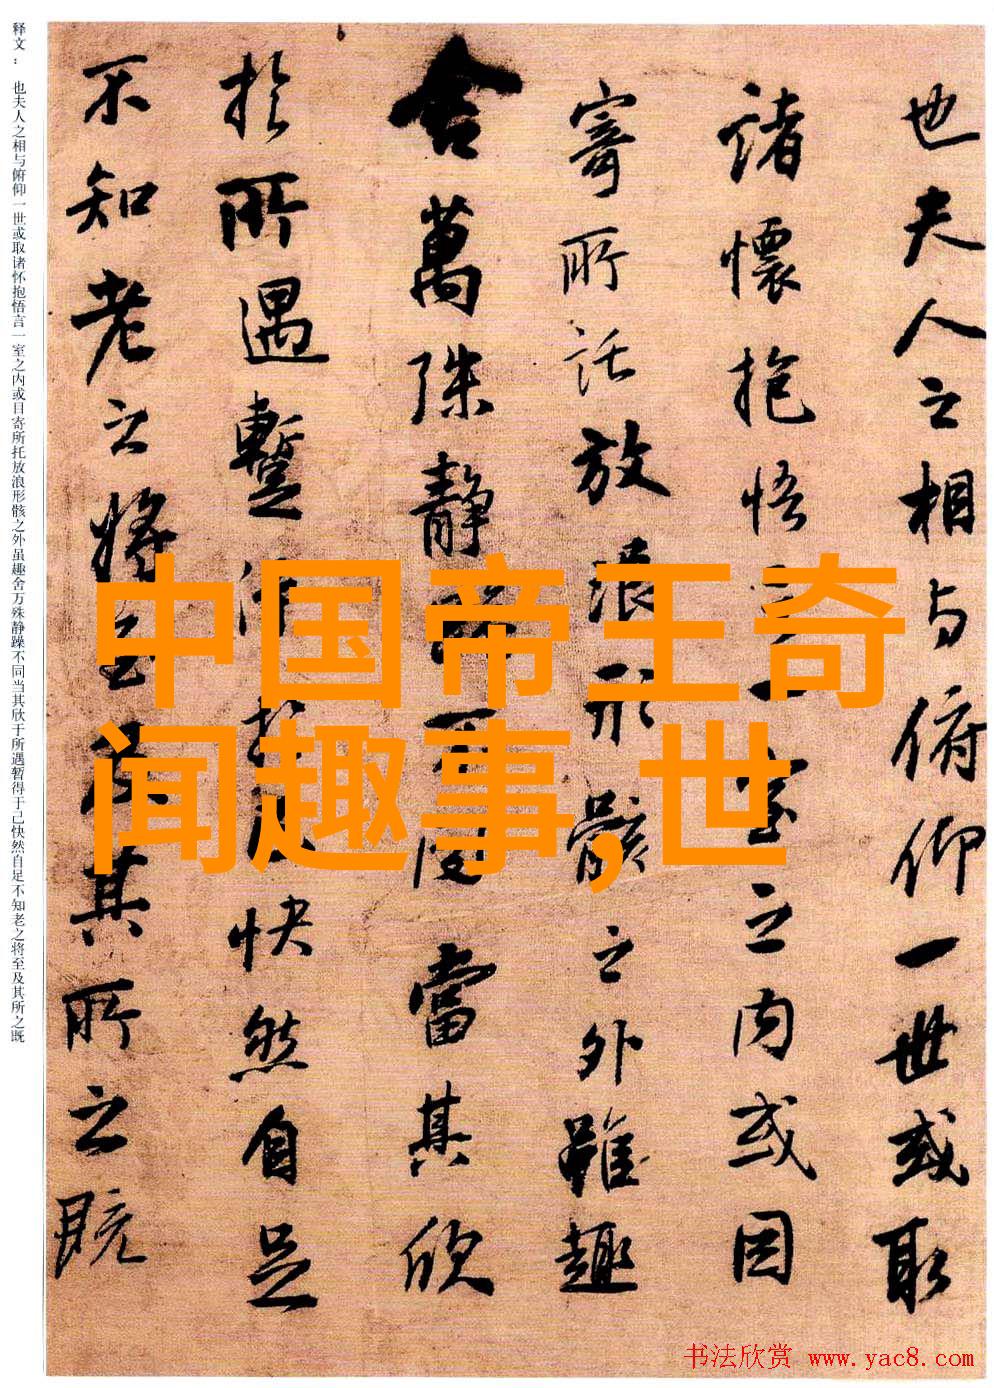 中国帝王奇
闻趣事,世
也夫人之相与俯仰一世或取
諸懷抱悟言一室之内或因
寄所託放浪形骸之外雖趣
舍萬殊静躁不同當其欣
於所遇蹔得於己快然自足
不知老之将至及其所之既
释文： 也夫人之相与俯仰一世或取诸怀抱悟言一室之内或目寄所托放浪形骸之外虽趣舍万殊静躁不同当其欣于所遇暂得于己快然自足不知老之将至及其所之既
书法欣赏 www.yac8.com